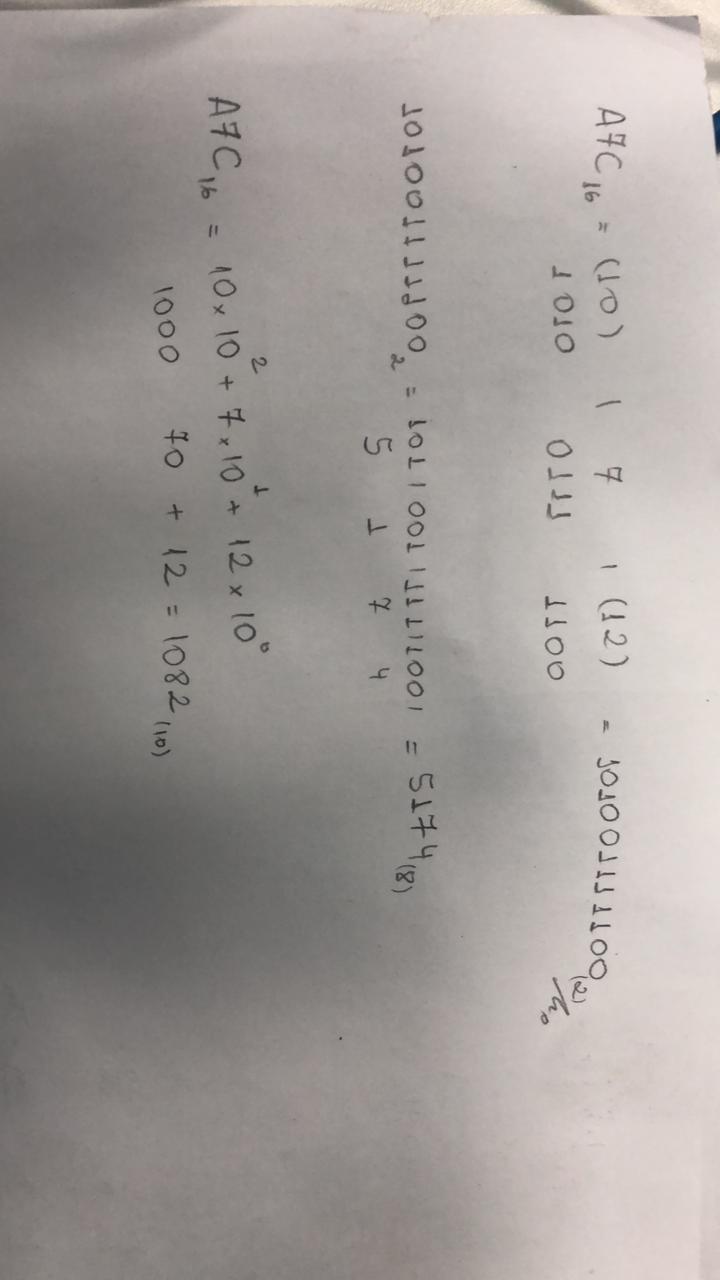 A7C₁₆ = (10) | 7 | (12) = 101001111100₍₂₎
1010 0111 1100
101001111100₂ = 101|001|111|100| = 5174₍₈₎
5 1 7 4
A7C₁₆ = 10 x 10² + 7 x 10¹ + 12 x 10⁰
1000 70 + 12 = 1082₍₁₀₎